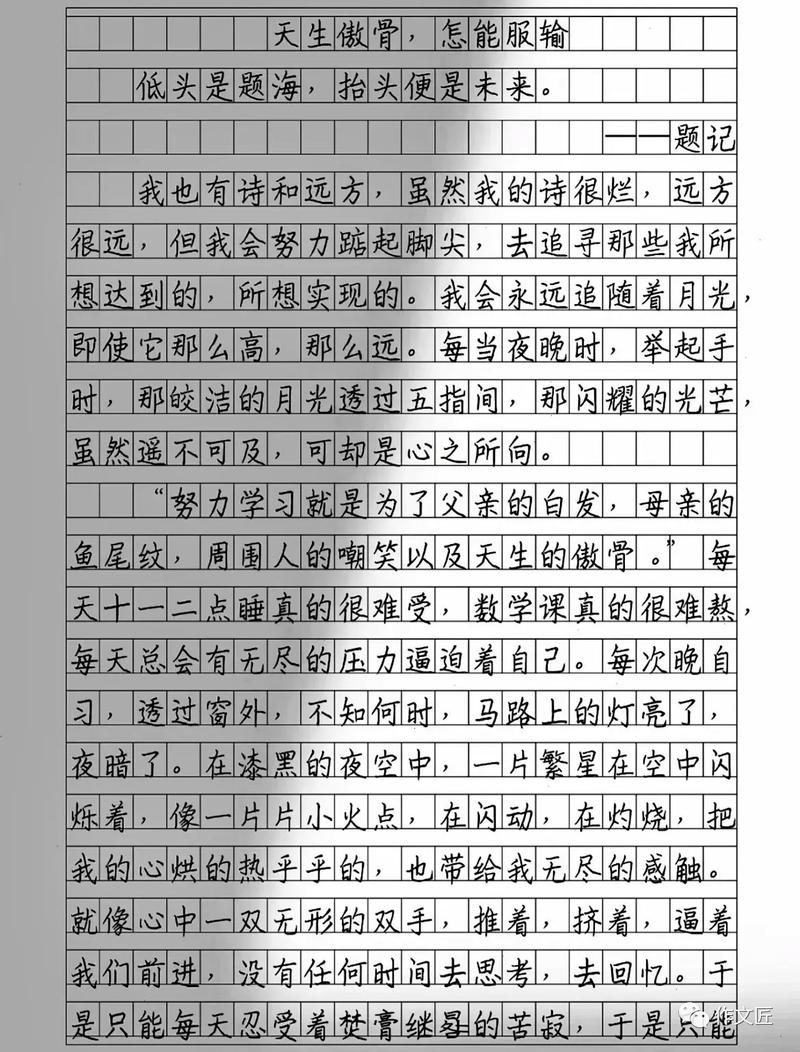 天生傲骨，怎能服输
低头是题海，抬头便是未来。
——题记
我也有诗和远方，虽然我的诗很烂，远方
很远，但我会努力踮起脚尖，去追寻那些我所
想达到的，所想实现的。我会永远追随着月光，
即使它那么高，那么远。每当夜晚时，举起手
时，那皎洁的月光透过五指间，那闪耀的光芒，
虽然遥不可及，可却是心之所向。
“努力学习就是为了父亲的白发，母亲的
鱼尾纹，周围人的嘲笑以及天生的傲骨。”每
天十一二点睡真的很难受，数学课真的很难熬，
每天总会有无尽的压力逼迫着自己。每次晚自
习，透过窗外，不知何时，马路上的灯亮了，
夜暗了。在漆黑的夜空中，一片繁星在空中闪
烁着，像一片片小火点，在闪动，在灼烧，把
我的心烘的热乎乎的，也带给我无尽的感触。
就像心中一双无形的双手，推着，挤着，逼着
我们前进，没有任何时间去思考，去回忆。于
是只能每天忍受着焚膏继晷的苦寂，于是只能
作文匠